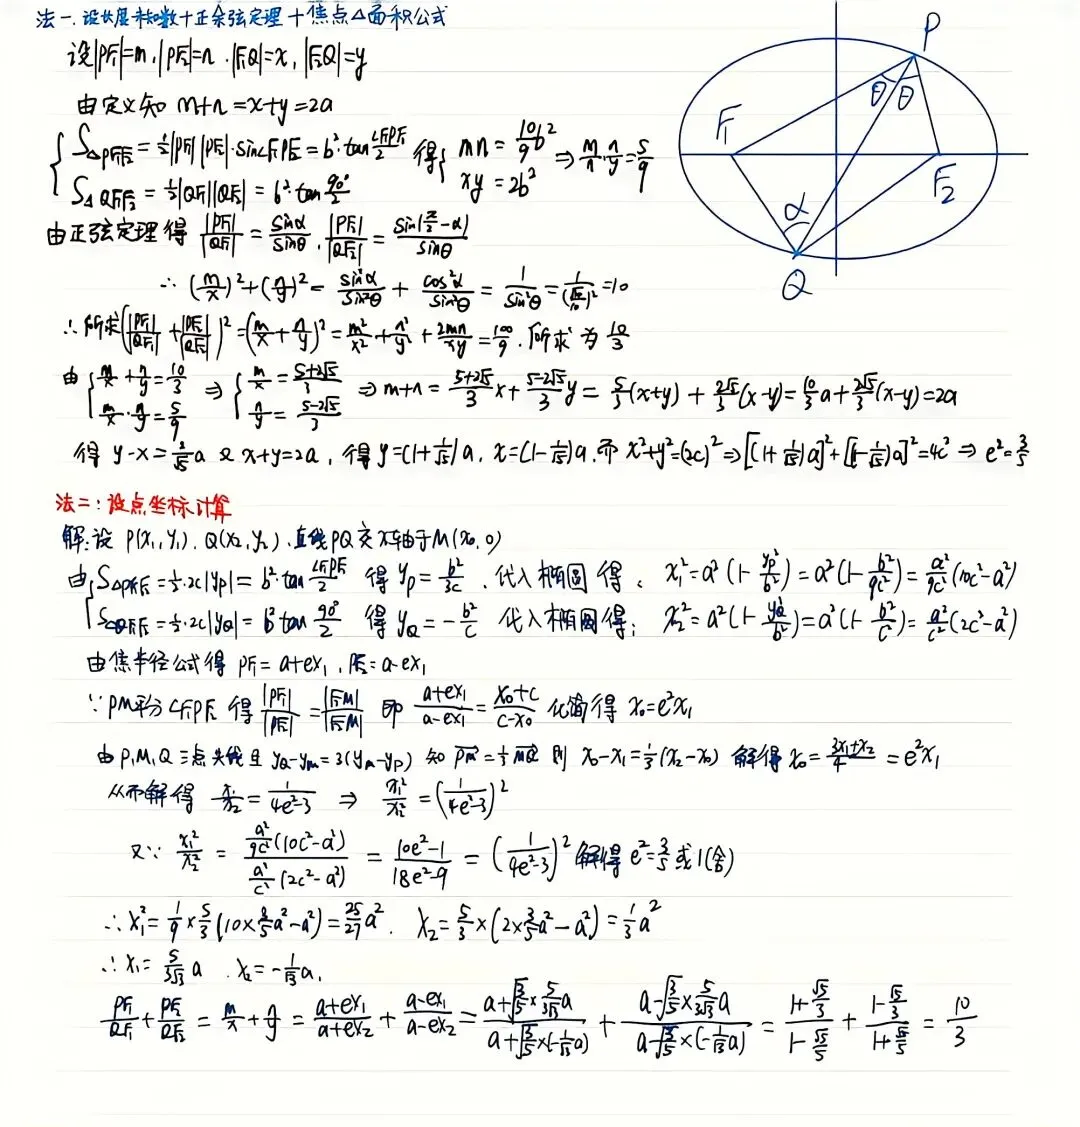 法一.设长度和对数+正余弦定理+焦点△面积公式
设|PF₁|=m,|PF₂|=n.|F₁Q|=x,|F₂Q|=y
由定义知 m+n=x+y=2a
{S△PF₁F₂=½|PF₁||PF₂|·sin∠F₁PF₂=b²·tan ∠F₁PF₂/2 得{mn=10/9 b² ⇒ m/x·n/y=5/9
S△QF₁F₂=½|QF₁||QF₂|=b²·tan 90°/2 xy=2b²
由正弦定理得 |PF₁|/|QF₁|=sinα/sinθ, |PF₂|/|QF₂|=sin(π/2-α)/sinθ
∴(m/x)²+(n/y)²=sin²α/sin²θ+cos²α/sin²θ=1/sin²θ=1/(√10/10)²=10
∴所求(|PF₁|/|QF₁|+|PF₂|/|QF₂|)²=(m/x+n/y)²=m²/x²+n²/y²+2mn/xy=100/9.所求为10/3
由{m/x+n/y=10/3 ⇒ {m/x=(5+2√5)/3 ⇒ m+n=(5+2√5)/3 x+(5-2√5)/3 y=5/3(x+y)+2√5/3(x-y)=10/3 a+2√5/3(x-y)=2a
m/x·n/y=5/9 n/y=(5-2√5)/3
得 y-x=2/√5 a 又x+y=2a,得y=(1+1/√5)a,x=(1-1/√5)a.而x²+y²=(2c)²⇒[(1+1/√5)a]²+[(1-1/√5)a]²=4c²⇒e²=3/5
法二:设点坐标计算
解:设 P(x₁,y₁).Q(x₂,y₂).直线PQ交x轴于M(x₀,0)
由{S△PF₁F₂=½·2c|yP|=b²·tan ∠F₁PF₂/2 得 yP=b²/3c.代入椭圆得: x₁²=a²(1-yP²/b²)=a²(1-b²/9c²)=a²/9c²(10c²-a²)
S△QF₁F₂=½·2c|yQ|=b²tan 90°/2 得 yQ=-b²/c 代入椭圆得: x₂²=a²(1-yQ²/b²)=a²(1-b²/c²)=a²/c²(2c²-a²)
由焦半径公式得 PF₁=a+ex₁,PF₂=a-ex₁
∵PM平分∠F₁PF₂ 得|PF₁|/|PF₂|=|F₁M|/|F₂M| 即 (a+ex₁)/(a-ex₁)=(x₀+c)/(c-x₀) 化简得 x₀=e²x₁
由P,M,Q三点共线且 yQ-yM=3(yM-yP) 知 PM=⅓MQ 则 x₀-x₁=⅓(x₂-x₀) 解得x₀=(3x₁+x₂)/4=e²x₁
从而解得 x₁/x₂=1/(4e²-3) ⇒ x₁²/x₂²=(1/(4e²-3))²
又∵ x₁²/x₂²=(a²/9c²(10c²-a²))/(a²/c²(2c²-a²))=(10e²-1)/(18e²-9)=(1/(4e²-3))² 解得e²=3/5或1(舍)
∴x₁²=1/9×5/3(10×3/5a²-a²)=25/27a². x₂=5/3×(2×3/5a²-a²)=1/3a²
∴x₁=5/3√3 a.x₂=-1/√3 a.
PF₁/QF₁+PF₂/QF₂=m/x+n/y=(a+ex₁)/(a+ex₂)+(a-ex₁)/(a-ex₂)=(a+√(3/5)×5/3√3 a)/(a+√(3/5)×(-1/√3 a))+(a-√(3/5)×5/3√3 a)/(a-√(3/5)×(-1/√3 a))=(1+√5/3)/(1-√5/5)+(1-√5/3)/(1+√5/5)=10/3
P
θ θ
F₁
F₂
α
Q